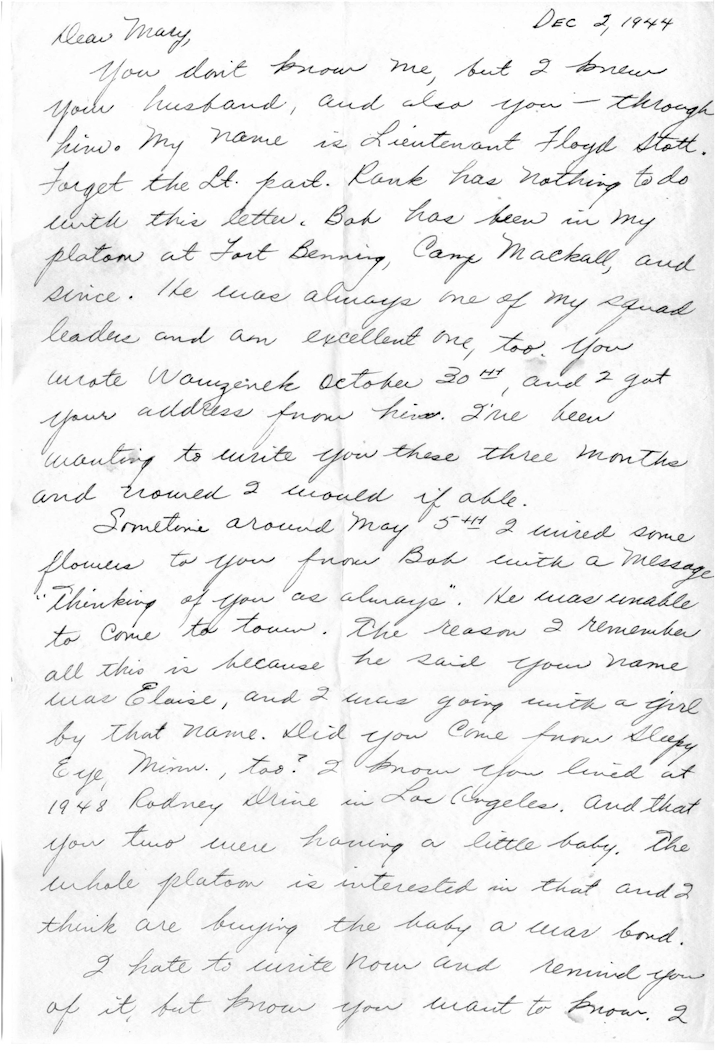 Dec 2, 1944
Dear Mary,
You don't know me, but I knew
your husband, and also you — through
him. My name is Lieutenant Floyd Stott.
Forget the Lt. part. Rank has nothing to do
with this letter. Bob has been in my
platoon at Fort Benning, Camp Mackall, and
since. He was always one of my squad
leaders and an excellent one, too. You
wrote Wamzenek October 30TH, and I got
your address from him. I've been
wanting to write you these three months
and vowed I would if able.
Sometime around May 5TH I wired some
flowers to you from Bob with a message
"Thinking of you as always". He was unable
to come to town. The reason I remember
all this is because he said your name
was Eloise, and I was going with a girl
by that name. Did you come from Sleepy
Eye, Minn., too? I know you lived at
1948 Rodney Drive in Los Angeles. And that
you two were having a little baby. The
whole platoon is interested in that and I
think are buying the baby a war bond.
I hate to write now and remind you
of it, but know you want to know. I